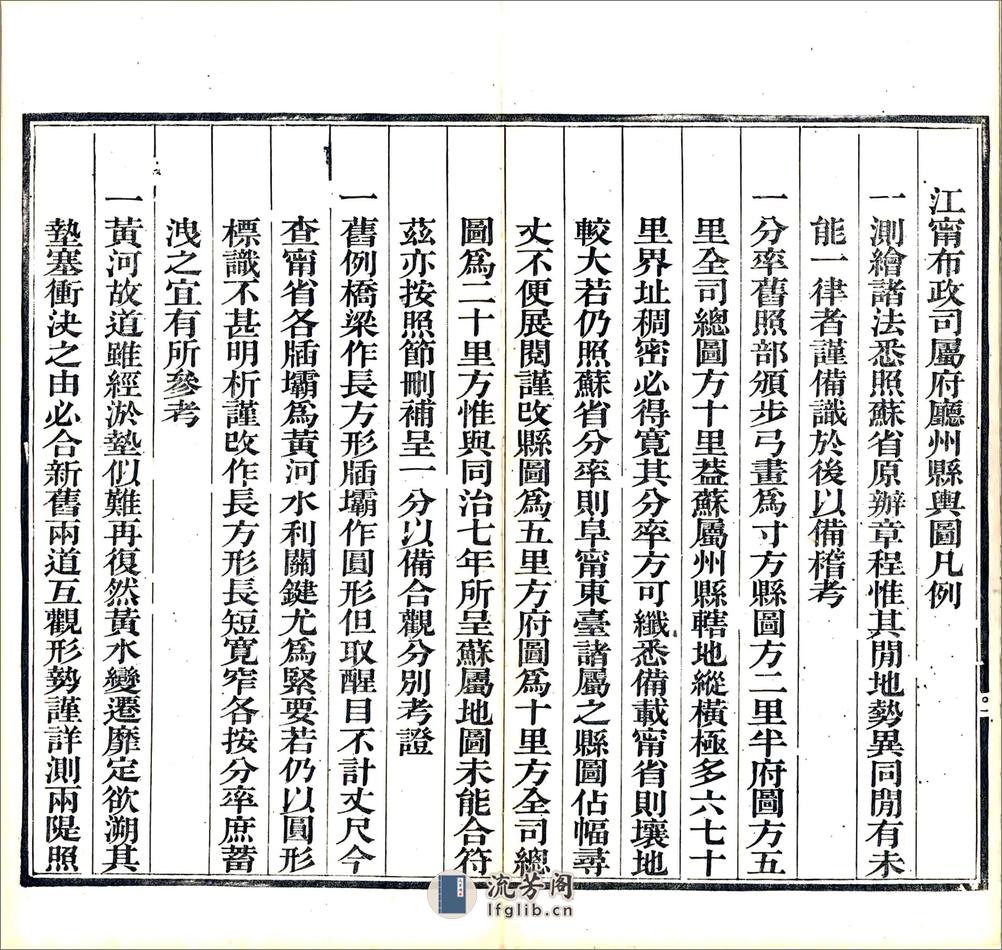 江甯布政司屬府廳州縣輿圖凡例
一測繪諸法悉照蘇省原辦章程惟其閒地勢異同閒有未
能一律者謹備識於後以備稽考
一分率舊照部頒步弓畫爲寸方縣圖方二里半府圖方五
里全司總圖方十里葢蘇屬州縣轄地縱橫極多六七十
里界址稠密必得寬其分率方可纖悉備載甯省則壤地
較大若仍照蘇省分率則阜甯東臺諸屬之縣圖佔幅尋
丈不便展閱謹改縣圖爲五里方府圖爲十里方全司總
圖爲二十里方惟與同治七年所呈蘇屬地圖未能合符
茲亦按照節刪補呈一分以備合觀分別考證
一舊例橋梁作長方形牐壩作圓形但取醒目不計丈尺今
查甯省各牐壩爲黃河水利關鍵尤爲緊要若仍以圓形
標識不甚明析謹改作長方形長短寬窄各按分率庶蓄
洩之宜有所參考
一黃河故道雖經淤墊似難再復然黃水變遷靡定欲溯其
墊塞衝決之由必合新舊兩道互觀形勢謹詳測兩隄照
流芳阁
lfglib.cn